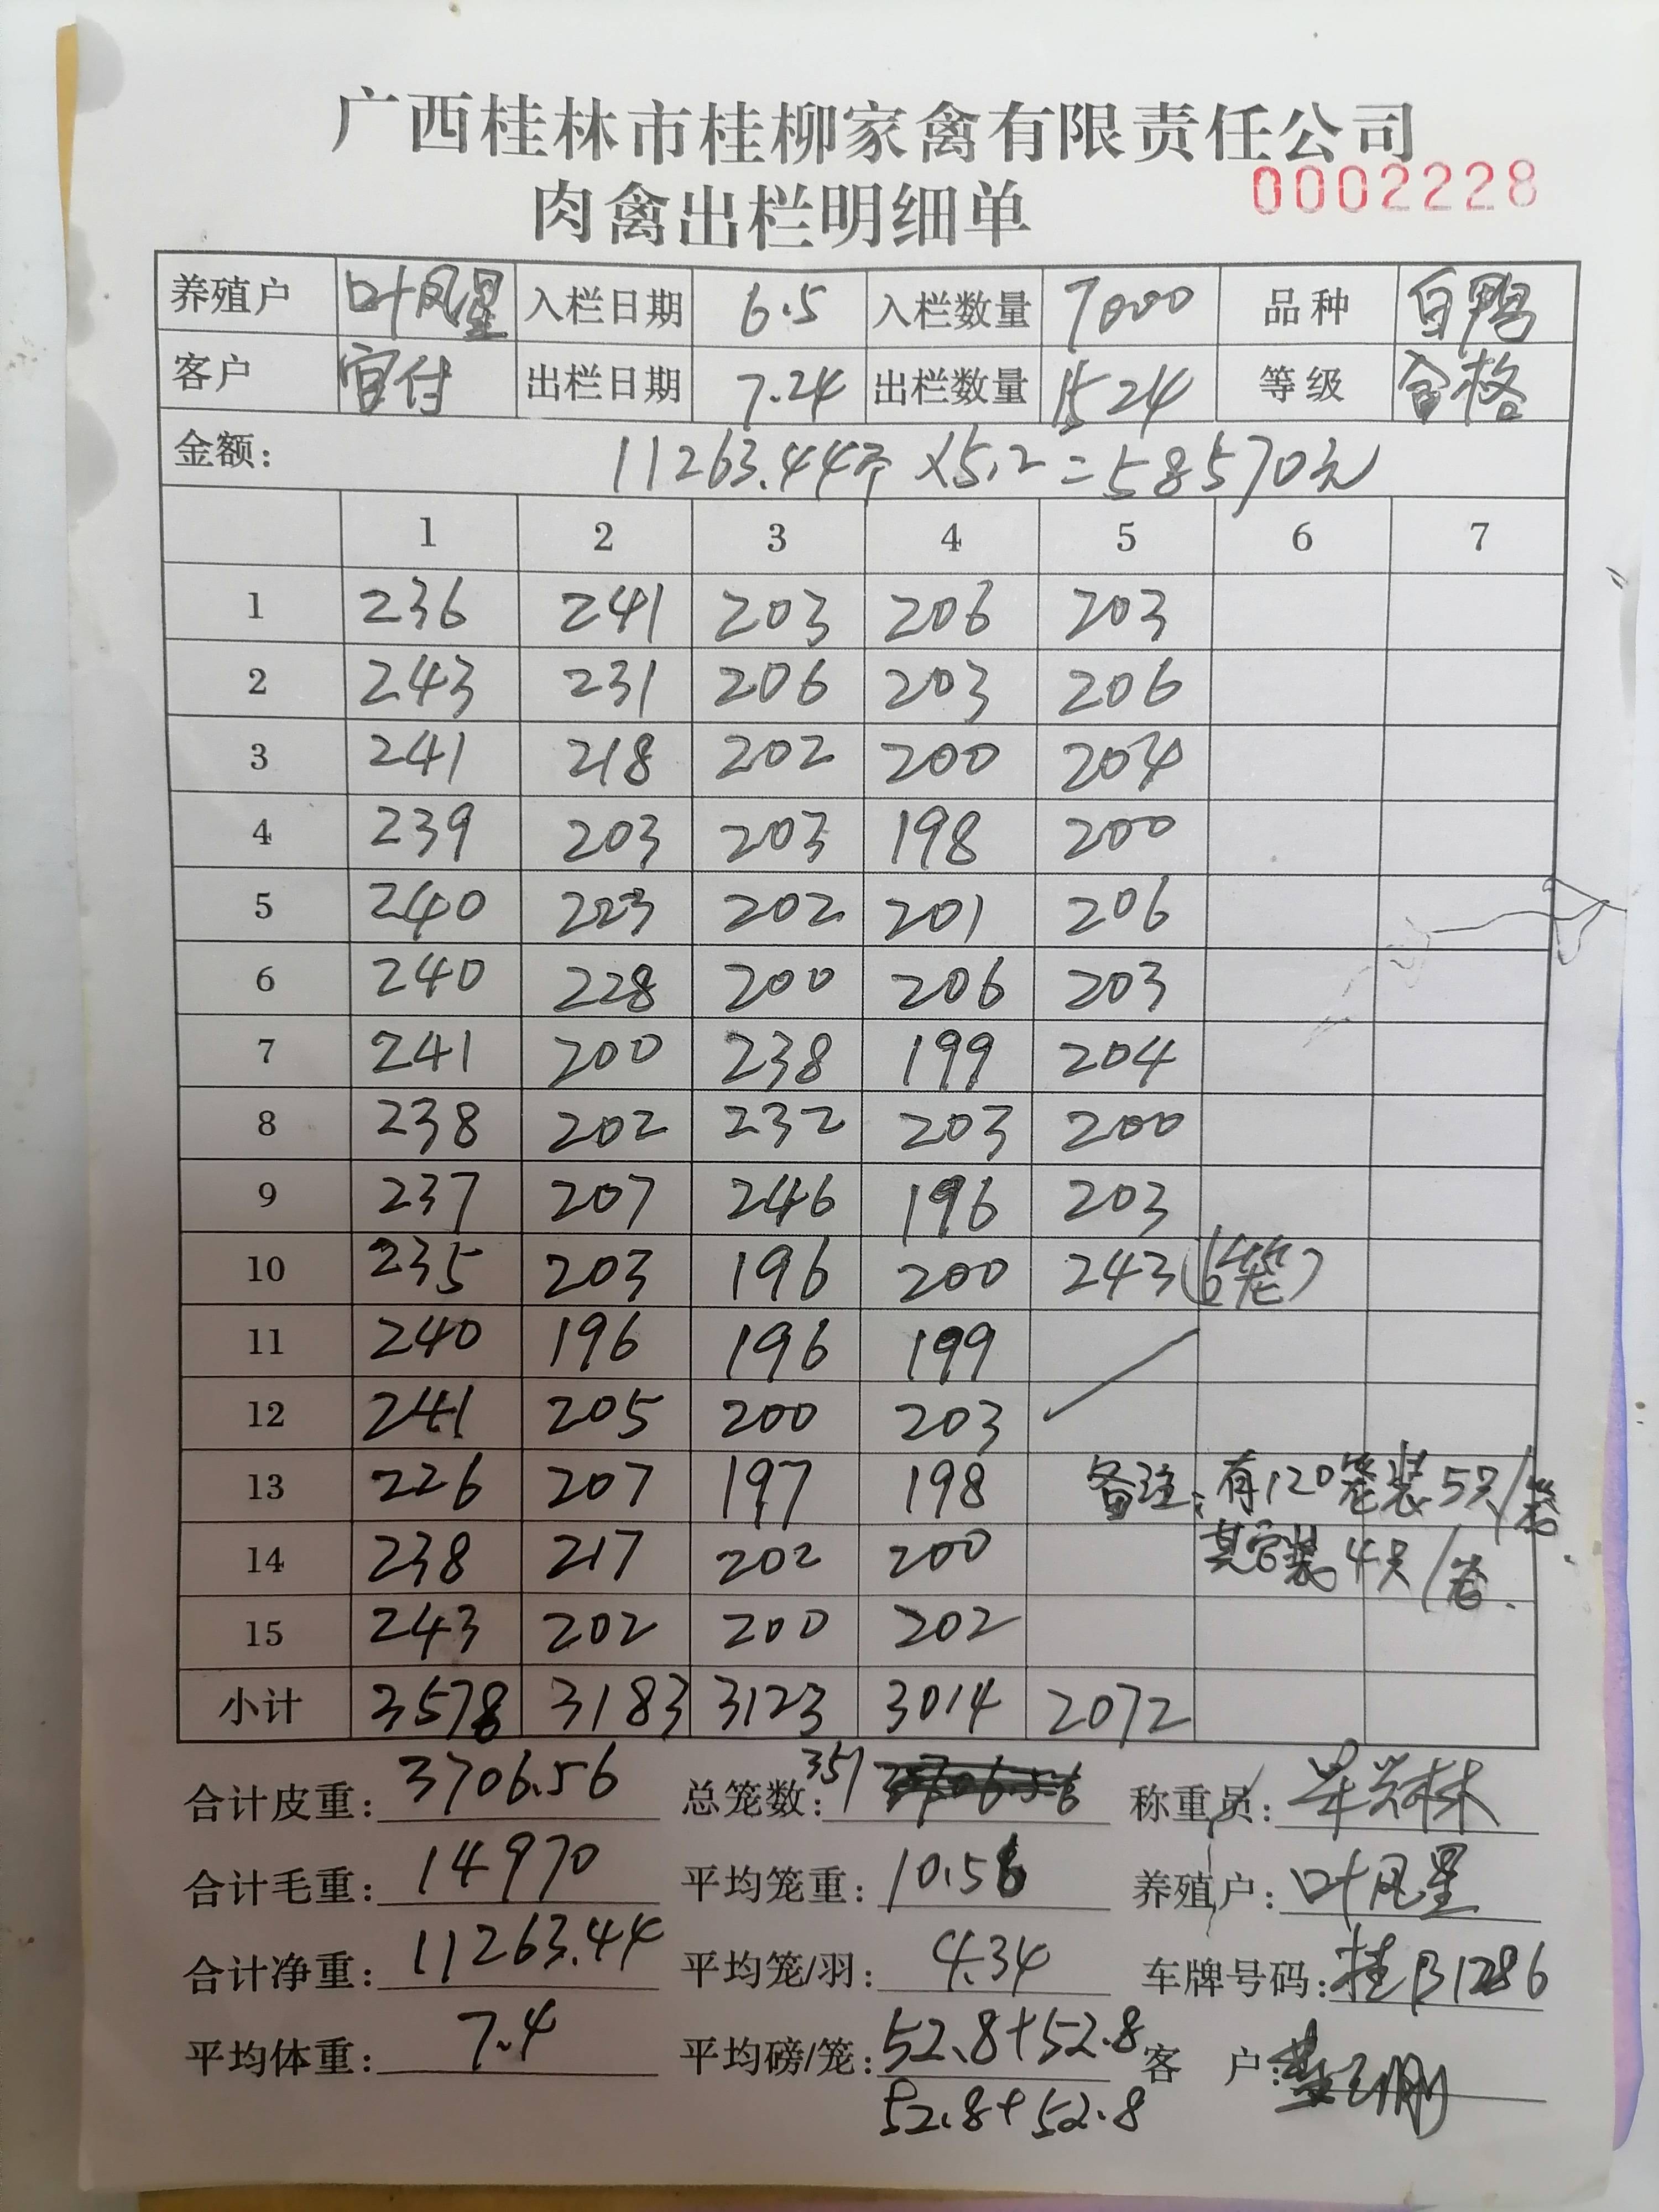 广西桂林市桂柳家禽有限责任公司
肉禽出栏明细单
0002228
养殖户 叶凤星 入栏日期 6.5 入栏数量 7000 品种 白鸭
客户 宫付 出栏日期 7.24 出栏数量 1524 等级 合格
金额: 11263.44斤×5.2=58570元
1 2 3 4 5 6 7
1 236 241 203 206 203
2 243 231 206 203 206
3 241 218 202 200 204
4 239 203 203 198 200
5 240 223 202 201 206
6 240 228 200 206 203
7 241 200 238 199 204
8 238 202 232 203 200
9 237 207 246 196 203
10 235 203 196 200 243(6笼)
11 240 196 196 199
12 241 205 200 203
13 226 207 197 198 备注:有120笼装5只/笼
14 238 217 202 200 其它装4只/笼.
15 243 202 200 202
小计 3578 3183 3123 3014 2072
合计皮重: 3706.56 总笼数: 351 称重员:
合计毛重: 14970 平均笼重: 10.56 养殖户: 叶凤星
合计净重: 11263.44 平均笼/羽: 4.34 车牌号码: 桂B1286
平均体重: 7.4 平均磅/笼: 52.8+52.8 客户:
52.8+52.8